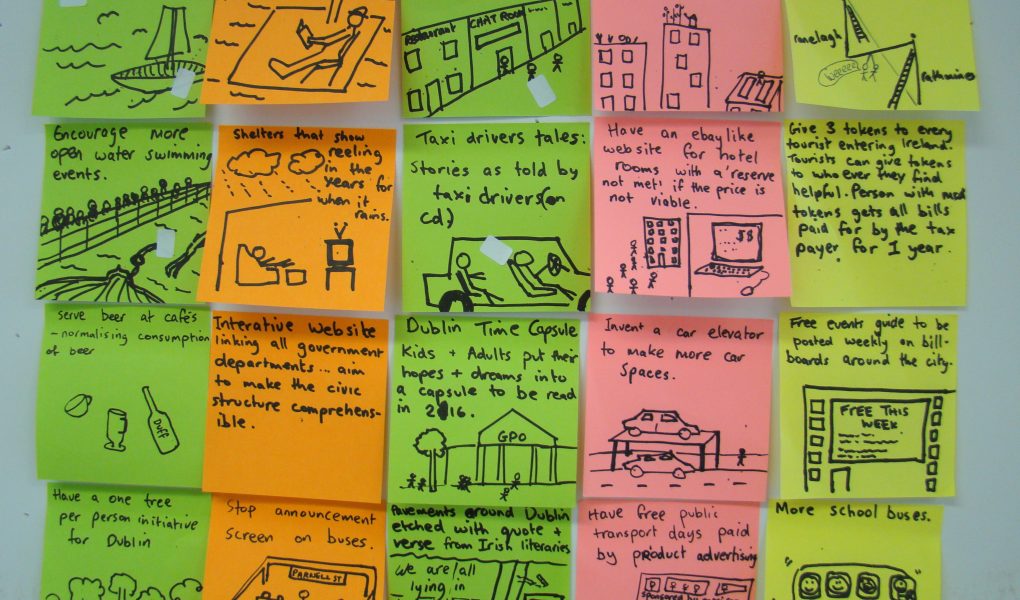 Restaurant
CHAT ROOM
ranelagh
Weeeee!
Rathmines
Encourage more
open water swimming
events.
Shelters that show
reeling
in the
years for
when it
rains.
Taxi drivers tales:
Stories as told by
taxi drivers(on
cd)
Have an ebay like
website for hotel
rooms with a 'reserve
not met' if the price is
not viable.
$$
Give 3 tokens to every
tourist entering Ireland.
Tourists can give tokens
to who ever they find
helpful. Person with most
tokens gets all bills
paid for by the tax
payer for 1 year.
Serve beer at cafés
- normalising consumption
of beer
Duff
Interative website
linking all government
departments... aim
to make the civic
structure comprehens-
ible.
Dublin Time Capsule
Kids + Adults put their
hopes + dreams into
a capsule to be read
in 2016.
GPO
Invent a car elevator
to make more car
spaces.
Free events guide to be
posted weekly on bill-
boards around the city.
FREE THIS
WEEK
Have a one tree
per person initiative
for Dublin
Stop announcement
screen on buses.
PARNELL ST
Pavements around Dublin
etched with quote +
verse from Irish literaries
we are/all
lying in
Have free public
transport days paid
by product advertising
sponsored by
More school buses.